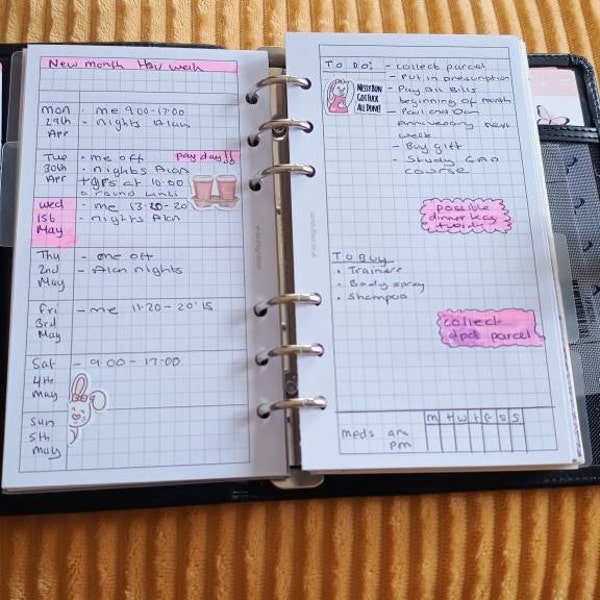 New month Hair wash
Mon - me 9.00-17:00
29th - nights Alan
Apr
Tue - me off pay day!!
30th - nights Alan
Apr + GPs at 10:00
around lunch
Wed - me 13:20-20
1st - nights Alan
May
Thu - me off
2nd - Alan nights
May
Fri - me 11:20-20:15
3rd
May
Sat - 9:00-17:00
4th
May
Sun
5th
May
TO DO: - collect parcel
- Put in prescription
- Pay All Bills
beginning of month
- Paul and Dan
Anniversary next
week
- Buy gift
- Study
course
MESSY BUN
GET
ALL DONE!
possible
dinner
TO Buy
• Trainers
• Body spray
• Shampoo
collect
dpd parcel
M T W T F S S
meds am
pm